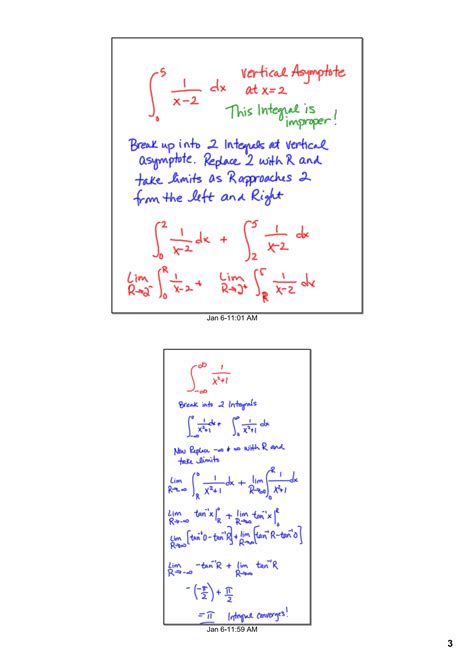 ∫₀⁵ 1/(x-2) dx vertical Asymptote
at x=2
This Integral is
improper!
Break up into 2 Integrals at vertical
asymptote. Replace 2 with R and
take limits as R approaches 2
from the left and Right
∫₀² 1/(x-2) dx + ∫₂⁵ 1/(x-2) dx
Lim R→2⁻ ∫₀ᴿ 1/(x-2) + Lim R→2⁺ ∫ᴿ⁵ 1/(x-2) dx
Jan 6-11:01 AM
∫₋∞^∞ 1/(x²+1)
Break into 2 Integrals
∫₋∞^0 1/(x²+1) dx + ∫₀^∞ 1/(x²+1) dx
Now Replace -∞ + ∞ with R and
take limits
Lim R→-∞ ∫_R^0 1/(x²+1) dx + lim R→∞ ∫_0^R 1/(x²+1) dx
Lim R→-∞ tan⁻¹x|_R^0 + lim R→∞ tan⁻¹x|_0^R
Lim [tan⁻¹0 - tan⁻¹R] + lim R→∞ [tan⁻¹R - tan⁻¹0]
Lim R→-∞ -tan⁻¹R + lim R→∞ tan⁻¹R
-(-π/2) + π/2
= π Integral converges!
Jan 6-11:59 AM
3